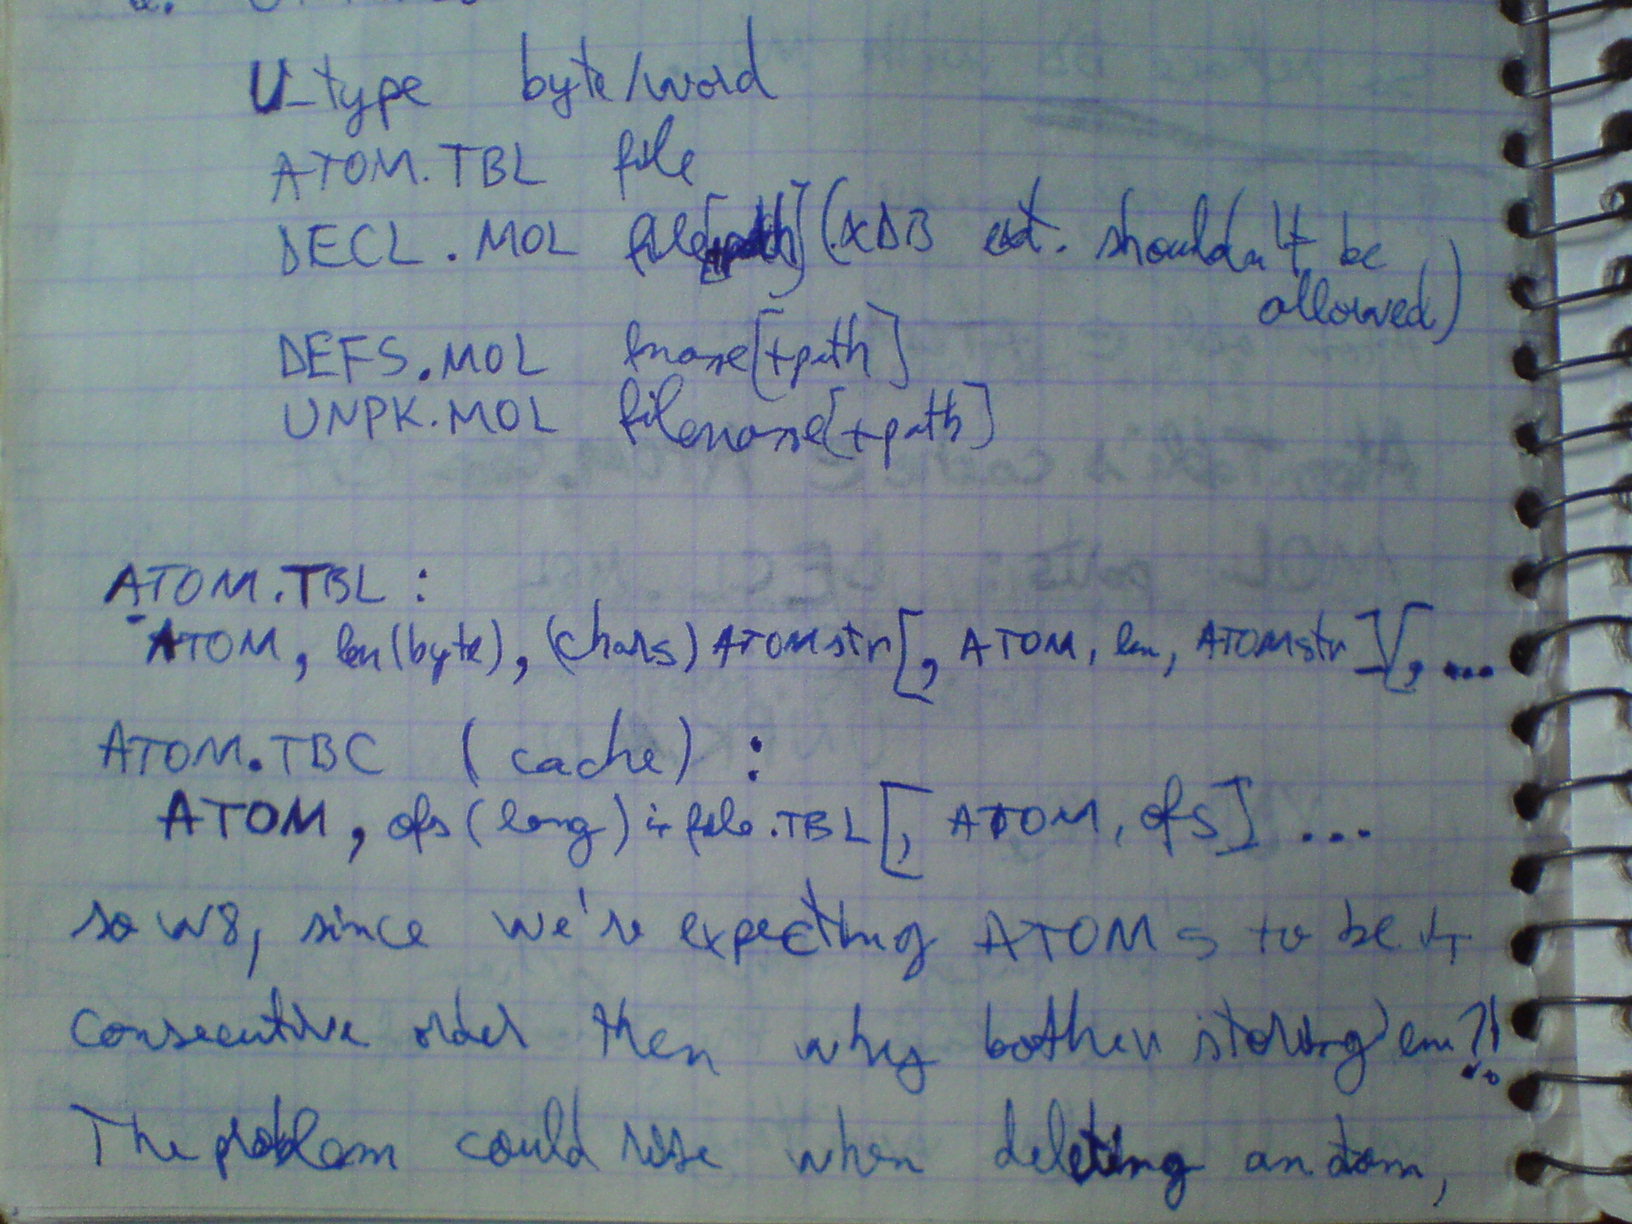 U_type byte/word
ATOM.TBL file
DECL.MOL file[+path] (.XDB ext. shouldn't be
allowed)
DEFS.MOL fname[+path]
UNPK.MOL filename[+path]
ATOM.TBL:
ATOM, len(byte), (chars) ATOMstr[, ATOM, len, ATOMstr][, ...
ATOM.TBC (cache) :
ATOM, ofs(long) in file.TBL[, ATOM, ofs] ...
so w8, since we're expecting ATOMs to be in
consecutive order then why bother storing 'em?!
The problem could rise when deleting an atom,